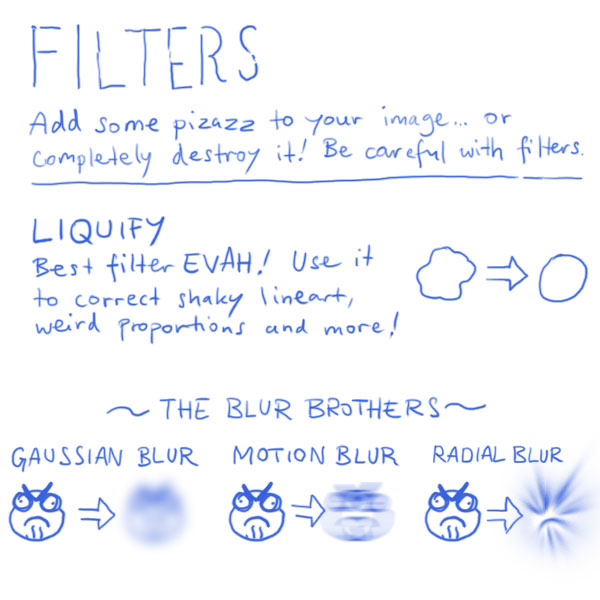 FILTERS
Add some pizazz to your image... or
completely destroy it! Be careful with filters.
LIQUIFY
Best filter EVAH! Use it
to correct shaky lineart,
weird proportions and more!
~ THE BLUR BROTHERS ~
GAUSSIAN BLUR MOTION BLUR RADIAL BLUR